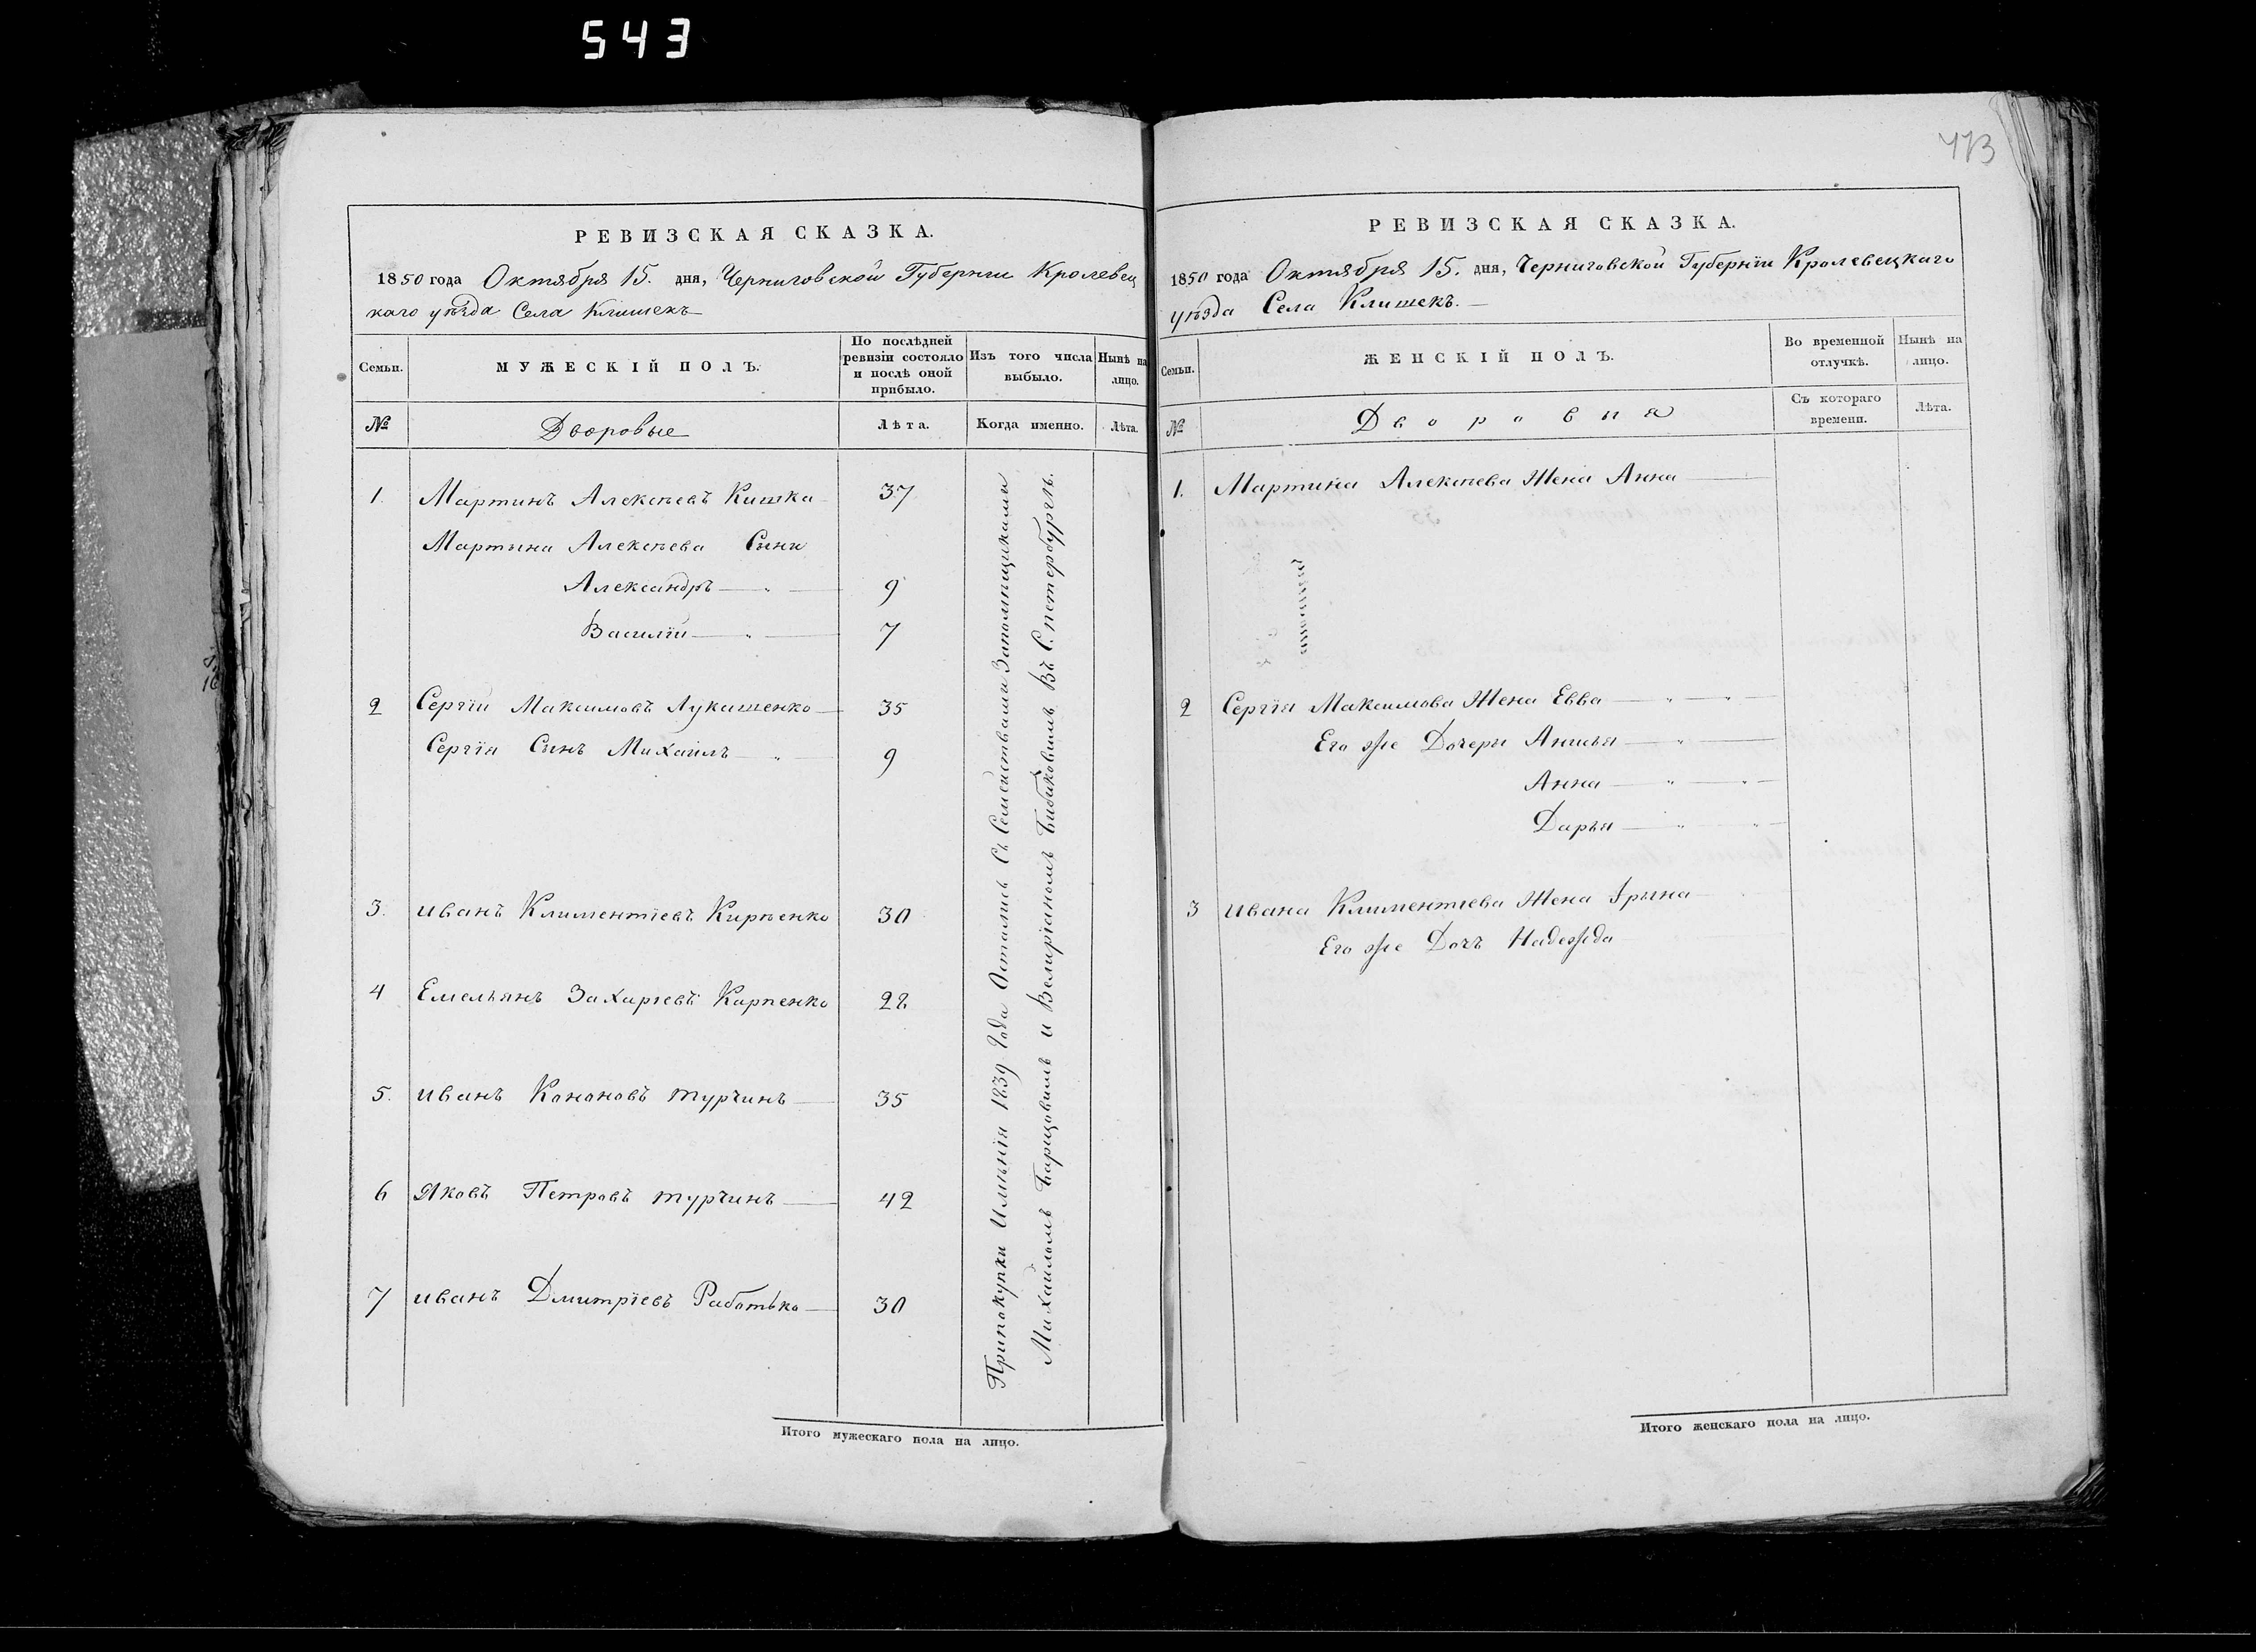 543
473
РЕВИЗСКАЯ СКАЗКА.
1850 года Октября 15. дня, Черниговской Губернии Кролевец
каго уѣзда Села Клишекъ
Семьи.
МУЖЕСКІЙ ПОЛЪ.
По послѣдней
ревизіи состояло
и послѣ оной
прибыло.
Изъ того числа
выбыло.
Нынѣ на
лицо.
№
Дворовые
Лѣта.
Когда именно.
Лѣта.
1. Мартинъ Алексѣевъ Кишка 37
Мартына Алексѣева Сыни
Александръ 9
Василій 7
2 Сергій Максимовъ Лукашенко 35
Сергія Сынъ Михаилъ 9
3. Иванъ Климентіевъ Кирѣенко 30
4 Емельянъ Захаріевъ Карпенко 22
5. Иванъ Кононовъ Турчинъ 35
6 Яковъ Петровъ Турчинъ 42
7 Иванъ Дмитріевъ Работько 30
Припокупки Имѣнія 1839 Года Остались Съ Семействами Запомѣщиками
Михайломъ и Велиріаномъ Бибиковимъ Въ С. петербургѣ.
Итого мужескаго пола на лицо.
РЕВИЗСКАЯ СКАЗКА.
1850 года Октября 15. дня, Черниговской Губерніи Кролевецкаго
уѣзда Села Клишекъ.
Семьи.
ЖЕНСКІЙ ПОЛЪ.
Во временной
отлучкѣ.
Нынѣ на
лицо.
№
Дворовыя
Съ котораго
времени.
Лѣта.
1. Мартина Алексѣева Жена Анна
2 Сергія Максимова Жена Евва
Его же Дочеры Анисья
Анна
Дарья
3 Ивана Климентіева Жена Ірына
Его же Дочъ Надежда
Итого женскаго пола на лицо.